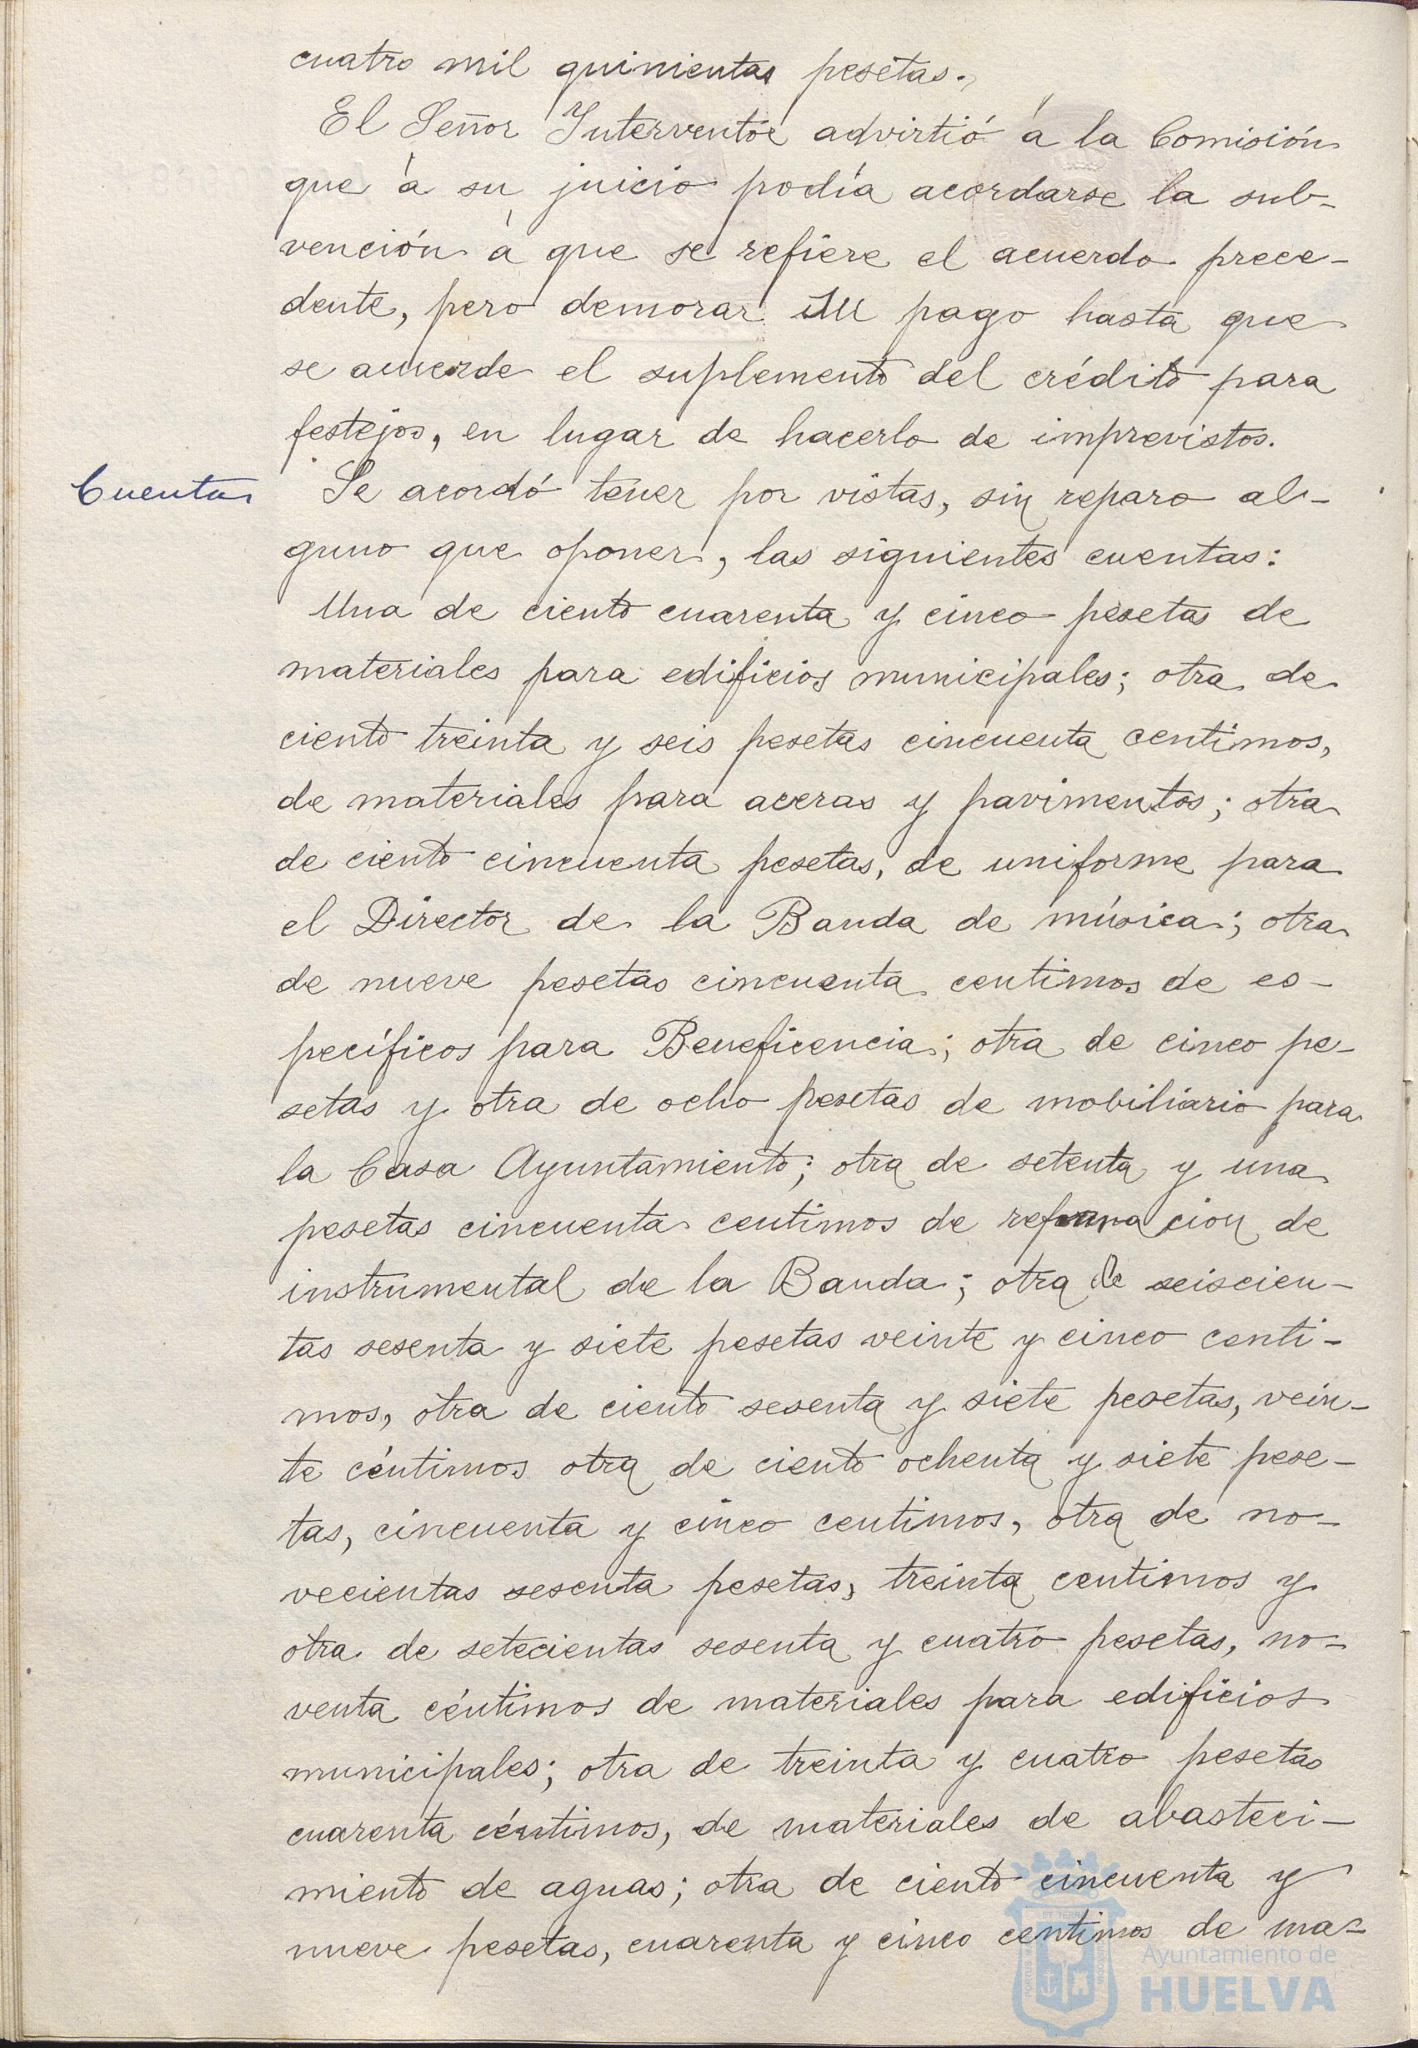 cuatro mil quinientas pesetas.
El Señor Interventor advirtió á la Comisión
que á su juicio podía acordarse la sub-
vención á que se refiere el acuerdo prece-
dente, pero demorar su pago hasta que
se acuerde el suplemento del crédito para
festejos, en lugar de hacerlo de imprevistos.
Cuentas
Se acordó tener por vistas, sin reparo al-
guno que oponer, las siguientes cuentas:
Una de ciento cuarenta y cinco pesetas de
materiales para edificios municipales; otra de
ciento treinta y seis pesetas cincuenta centimos,
de materiales para aceras y pavimentos; otra
de ciento cincuenta pesetas, de uniforme para
el Director de la Banda de música; otra
de nueve pesetas cincuenta centimos de es-
pecíficos para Beneficencia; otra de cinco pe-
setas y otra de ocho pesetas de mobiliario para
la Casa Ayuntamiento; otra de setenta y una
pesetas cincuenta centimos de reformacion de
instrumental de la Banda; otra de seiscien-
tas sesenta y siete pesetas veinte y cinco centi-
mos, otra de ciento sesenta y siete pesetas, vein-
te céntimos otra de ciento ochenta y siete pese-
tas, cincuenta y cinco centimos, otra de no-
vecientas sesenta pesetas, treinta centimos y
otra de setecientas sesenta y cuatro pesetas, no-
venta céntimos de materiales para edificios
municipales; otra de treinta y cuatro pesetas
cuarenta céntimos, de materiales de abasteci-
miento de aguas; otra de ciento cincuenta y
nueve pesetas, cuarenta y cinco centimos de ma-
Ayuntamiento de
HUELVA